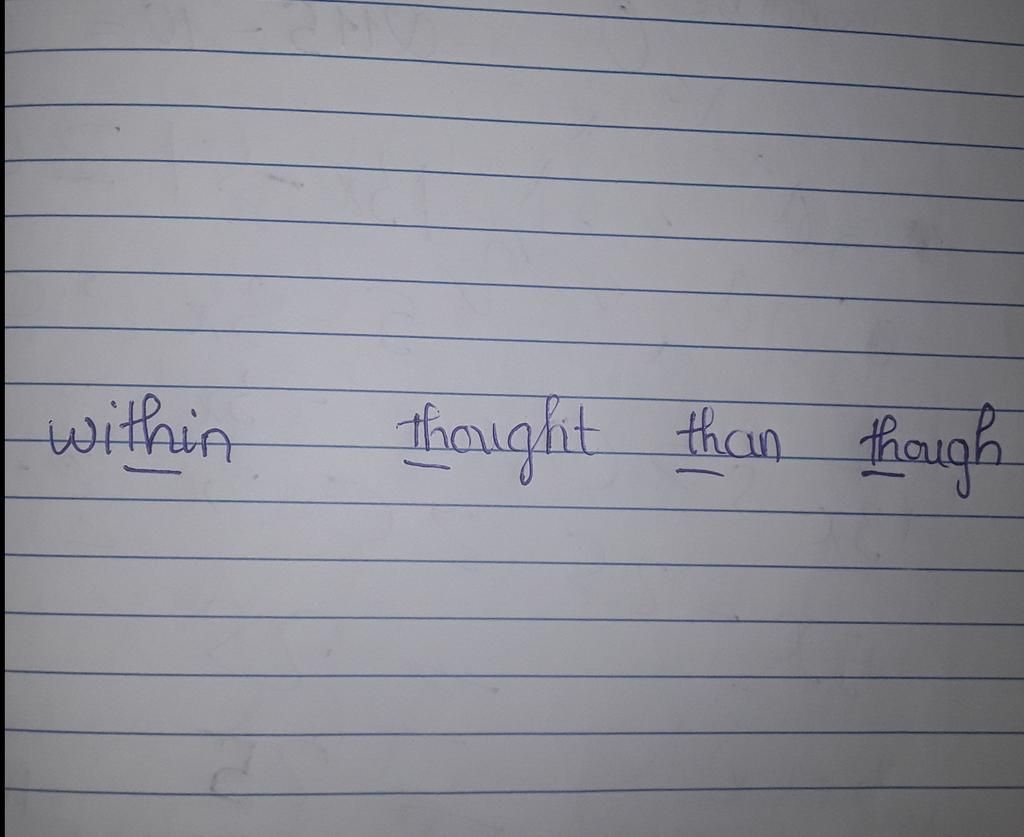 within thought than though